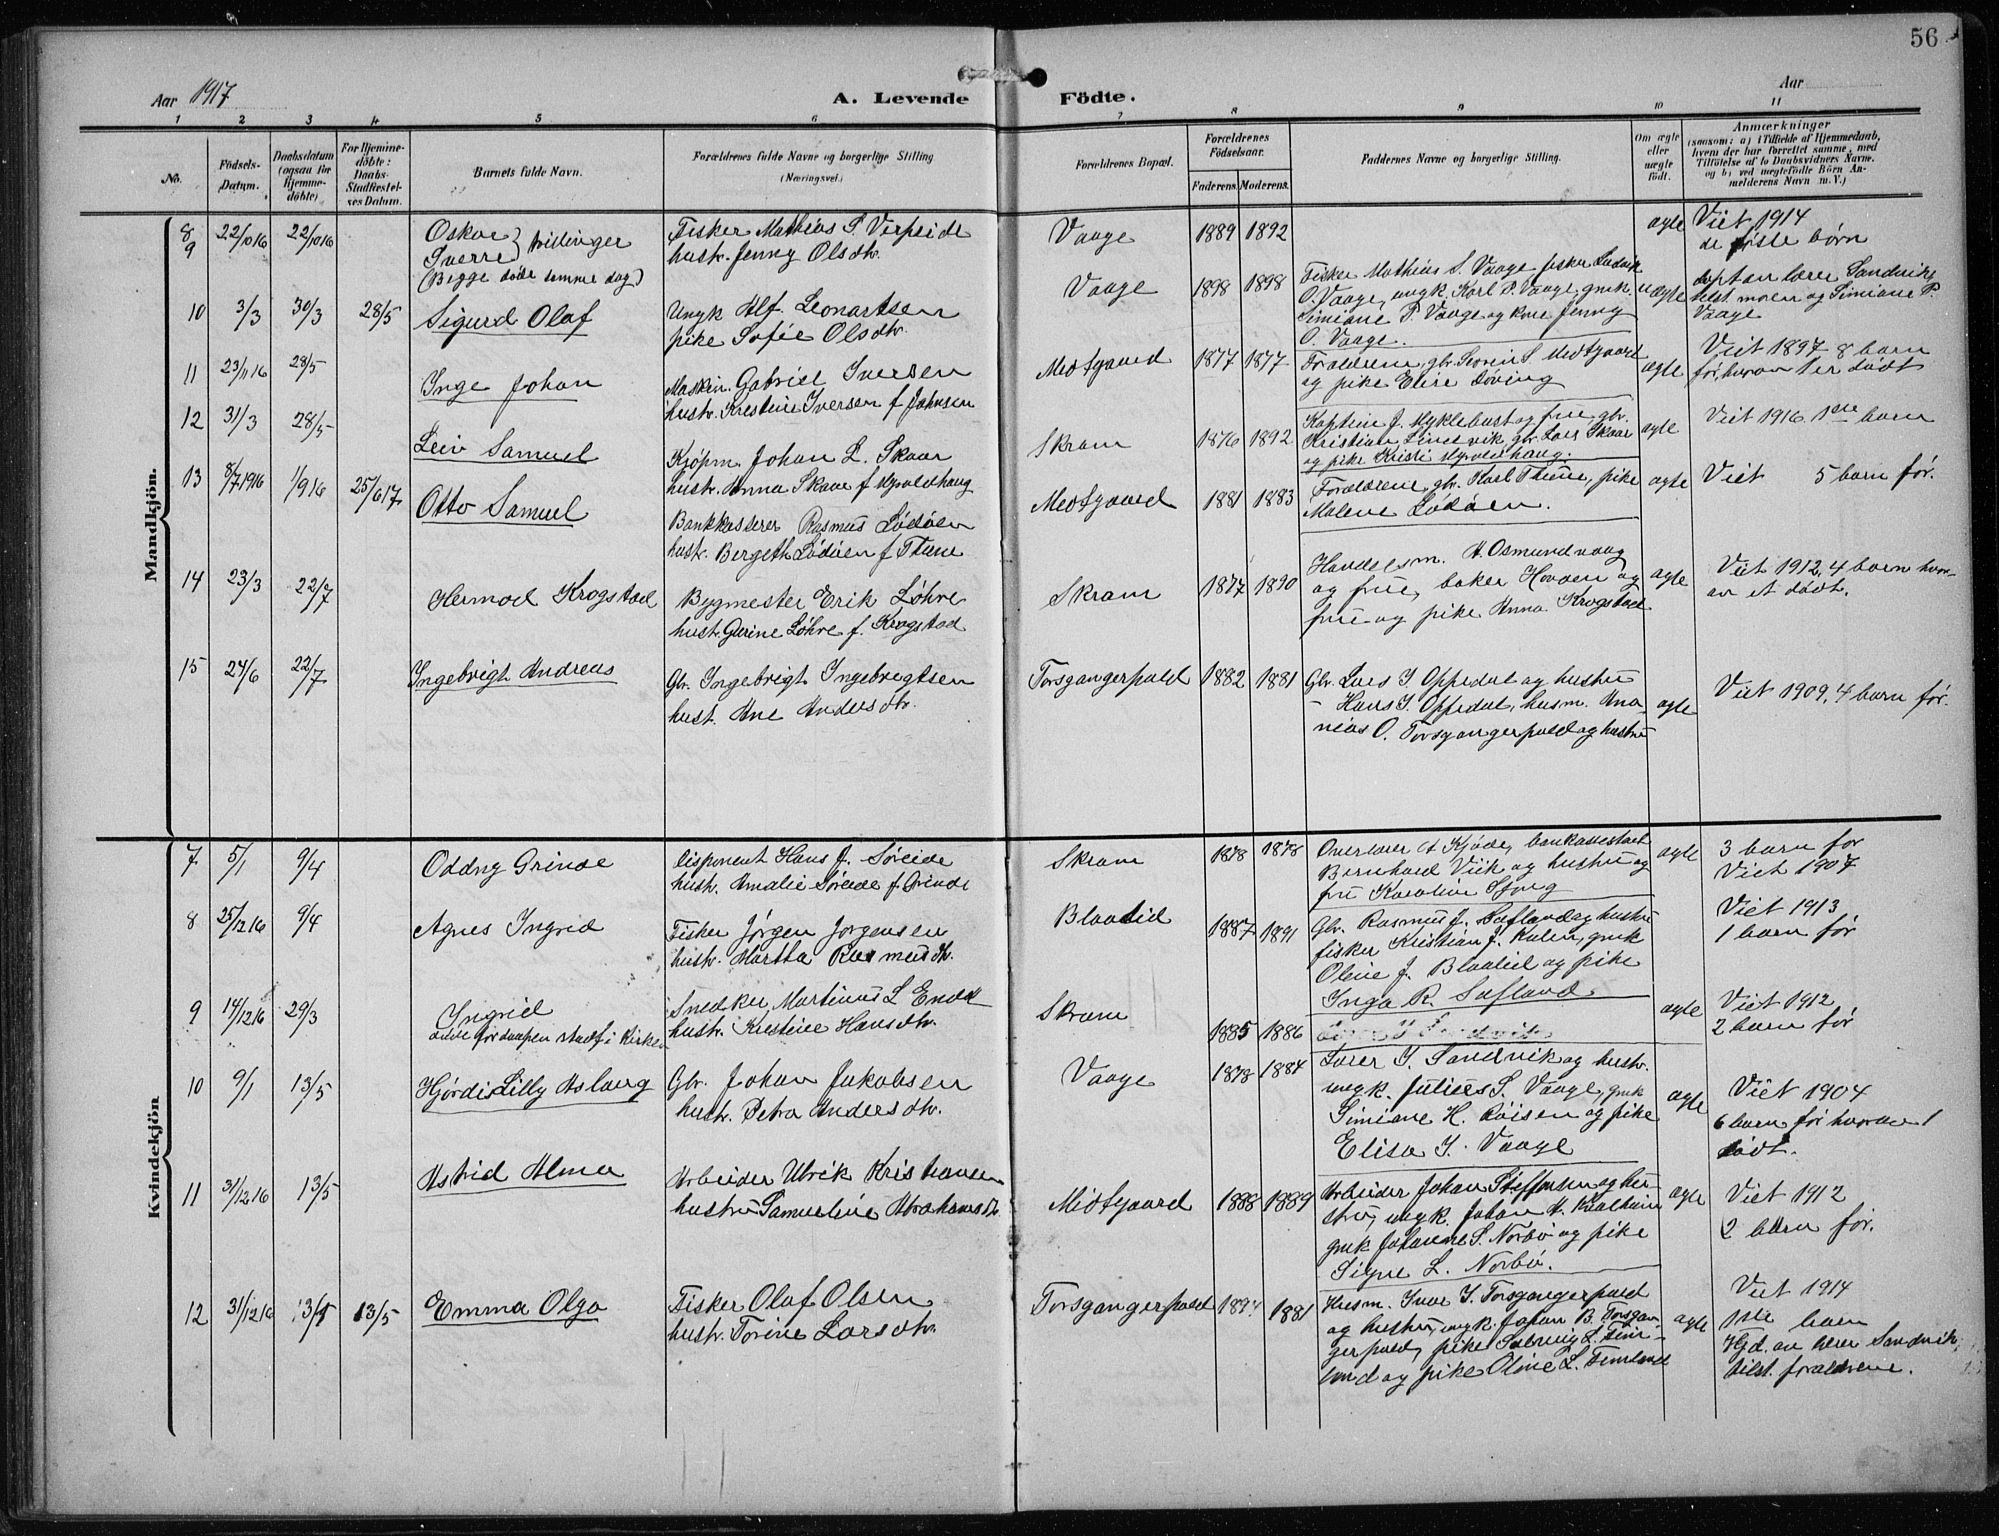 56
Aar 1917
A. Levende Födte.
Aar
1 2 3 4 5 6 7 8 9 10 11
No.
Födsels-Datum.
Daabsdatum (ogsaa for Hjemmedöbte)
For Hjemmedöbte: Daabs-Stadfæstelses Datum.
Barnets fulde Navn.
Forældrenes fulde Navne og borgerlige Stilling (Næringsvei.)
Forældrenes Bopæl.
Forældrenes Födselsaar.
Faderens. Moderens.
Faddernes Navne og borgerlige Stilling.
Om ægte eller uægte födt.
Anmærkninger
(saasom: a) i Tilfælde af Hjemmedaab, hvem der har forrettet samme, med Tilföielse af to Daabsvidners Navne. og b) ved uægtefödte Börn Anmelderens Navn m. V.)
Mandkjön.
8 9 22/10 16 22/10 16
Oskar Sverre } tvillinger
(Begge døde samme dag)
Fisker Mathias S.
hustr. Jenny Olsdtr.
Vaage 1889 1892 ægte
Viet 1914
de første børn
10 3/3 30/3 28/5
Sigurd Olaf
Ungk Alf. Leonartsen
pike Sofie Olsdtr.
Vaage 1898 1898
Fisker Mathias S. Vaage, fisker Ludvik
O. Vaage, ungk. Karl P. Vaage, gmk.
Simiane P. Vaage og kone Jenny
O. Vaage.
uægte
døpt av lærer Sandvik,
tilst. moren og Simiane P.
Vaage
11 23/11 16 28/5
Inge Johan
Maskin. Gabriel Iversen
hustr. Kristine Iversen f Johnsen
Midtgaard 1877 1877
Forældrene, gbr. S. Midtgaard
og pike Elise Døving
ægte
Viet 1897 8 barn
før, hvorav 1 er dødt
12 31/3 28/5
Leiv Samuel
Kjøpm. Johan L. Skaar
hustr. Anna Skaar f Myklebust
Skram 1876 1892
Kaptein J. Myklebust og frue, gbr.
Kristian, gbr. Lars Skaar
og pike Kristi
ægte
Viet 1916. 1ste barn
13 8/7 1916 1/9 16 25/6 17
Otto Samuel
Bankkasserer Rasmus Lødøen
hustr. Bergeth Lødøen f Thune
Midtgaard 1881 1883
Forældrene, gbr. Karl Thune, pike
Malene Lødøen.
ægte
Viet 5 barn før.
14 23/3 22/7
Hermod Krogstad
Bygmester Erik Løhre
hustr. Gurine Løhre f. Krogstad
Skram 1877 1890
Handelsm. A. Osmundvaag
og frue, baker Hovden og
frue og pike Anna Krogstad
ægte
Viet 1912, 4 barn hvor-
av et dødt.
15 24/6 22/7
Ingebrigt Andreas
Gbr. Ingebrigt Ingebrigtsen
hust. Ane Andersdtr.
Torsgangerpold 1882 1881
Gbr. Lars I. Oppedal og hustru
- Hans I. Oppedal, husm. Ana-
nias O. Torsgangerpold og hustru
ægte
Viet 1909, 4 barn før.
Kvindekjön
7 5/1 9/4
Oddny Grinde
Disponent Hans J. Søreide
hustr. Amalie Søreide f. Grinde
Skram 1878 1878
Overlærer A Kjøde, bankassistent
Bernhard Viik og hustru og
fru Karoline
ægte
3 barn før
Viet 1907
8 25/12 16 9/4
Agnes Ingrid
Fisker Jørgen Jørgensen
hustr. Martha Rasmusdtr.
Blaalid 1887 1891
Gbr. Rasmus J. Sæfland og hustru
fisker Kristian J. Kulen, gmk
Oline J. Blaalid og pike
Inga R. Sæfland
Viet 1913
1 barn før
9 14/12 16 29/3
Ingrid
for daapen stadf. i Kirken
Snedker Martinus L
hustr. Kristine Hansdtr.
Skram 1885 1886 ægte
Viet 1912
2 barn før
10 9/1 13/5
Hjørdis Lilly Aslaug
Gbr. Johan Jakobsen
hustr. Petra Andersdtr.
Vaage 1878 1884
Lærer I. Sandvik og hustr.
ungk. Julius S. Vaage, gmk
Simiane H. Røisen og pike
Elisa I. Vaage
ægte
Viet 1904
6 barn før hvorav 1
dødt.
11 31/12 16 13/5
Astrid Alma
Arbeider Ulrik Kristiansen
hustru Samueline Abrahamsdtr
Midtgaard 1888 1889
Arbeider Johan Steffensen og hu-
stru, ungk. Johan A. Kvalheim
gmk Johanne S. Norbø og pike
Signe L. Norbø.
ægte
Viet 1912
2 barn før.
12 31/12 16 13/5 13/5
Emma Olga
Fisker Olaf Olsen
hustr. Torine Larsdtr.
Torsgangerpold 1894 1881
Husm. Ivar I. Torsgangerpold
og hustru, ungk. Johan B. Torsgan-
gerpold, pike Solveig L. Fim-
land og pike Oline L. Fimland
ægte
Viet 1914
1ste barn
Hjd. av lærer Sandvik,
tilst. forældrene.